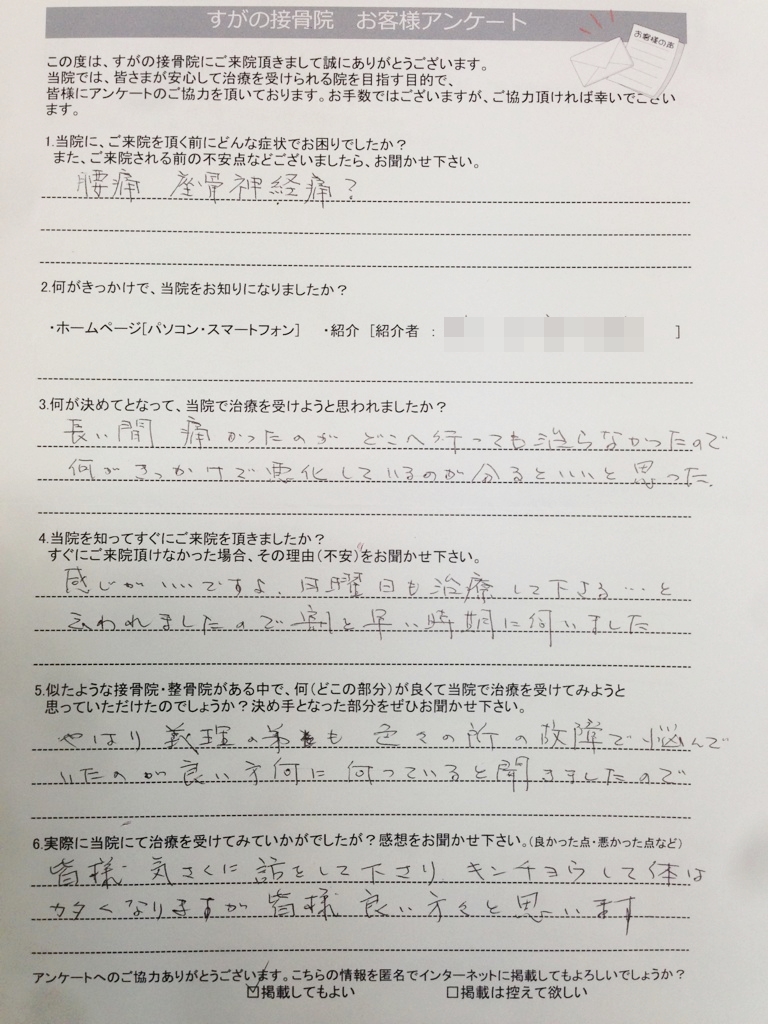 すがの接骨院 お客様アンケート
お客様の声
この度は、すがの接骨院にご来院頂きまして誠にありがとうございます。
当院では、皆さまが安心して治療を受けられる院を目指す目的で、
皆様にアンケートのご協力を頂いております。お手数ではございますが、ご協力頂ければ幸いでござい
ます。
1.当院に、ご来院を頂く前にどんな症状でお困りでしたか？
また、ご来院される前の不安点などございましたら、お聞かせ下さい。
腰痛 座骨神経痛？
2.何がきっかけで、当院をお知りになりましたか？
・ホームページ[パソコン・スマートフォン] ・紹介 [紹介者 : ]
3.何が決めてとなって、当院で治療を受けようと思われましたか？
長い間 痛かったのが どこへ行っても治らなかったので
何がきっかけで悪化しているのが分るといいと思った.
4.当院を知ってすぐにご来院を頂きましたか？
すぐにご来院頂けなかった場合、その理由(不安)をお聞かせ下さい。
感じがいいですよ、日曜日も治療して下さる…と
言われましたので割と早い時期に伺いました
5.似たような接骨院・整骨院がある中で、何(どこの部分)が良くて当院で治療を受けてみようと
思っていただけたのでしょうか？決め手となった部分をぜひお聞かせ下さい。
やはり義理の弟も 色々の所の故障で悩んで
いたのが良い方何に向っていると聞きましたので
6.実際に当院にて治療を受けてみていかがでしたが？感想をお聞かせ下さい。(良かった点・悪かった点など)
皆様 気さくに話をして下さり キンチョウして体は
カタくなりますが皆様 良い方々と思います
アンケートへのご協力ありがとうございます。こちらの情報を匿名でインターネットに掲載してもよろしいでしょうか？
☑掲載してもよい □掲載は控えて欲しい